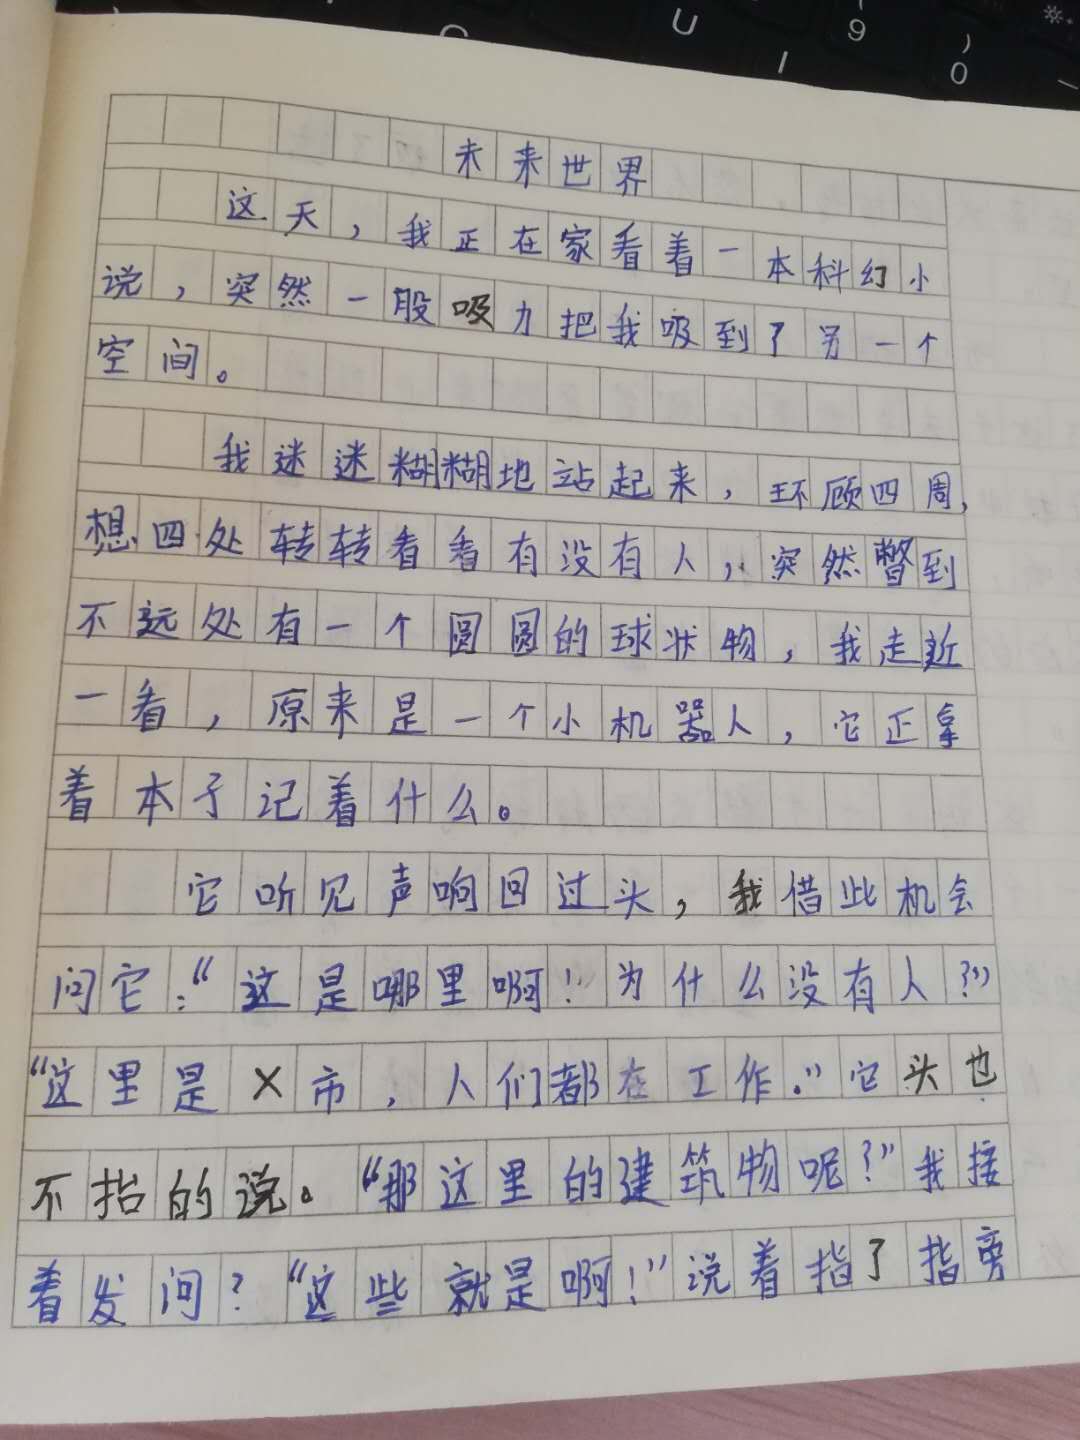 U
9
I
)
0
未来世界
这天，我正在家看着一本科幻小
说，突然一股吸力把我吸到了另一个
空间。
我迷迷糊糊地站起来，环顾四周，
想四处转转看看有没有人，突然瞥到
不远处有一个圆圆的球状物，我走近
一看，原来是一个小机器人，它正拿
着本子记着什么。
它听见声响回过头，我借此机会
问它：“这是哪里啊！为什么没有人？”
“这里是X市，人们都在工作．”它头也
不抬的说。“那这里的建筑物呢？”我接
着发问？“这些就是啊！”说着指了指旁